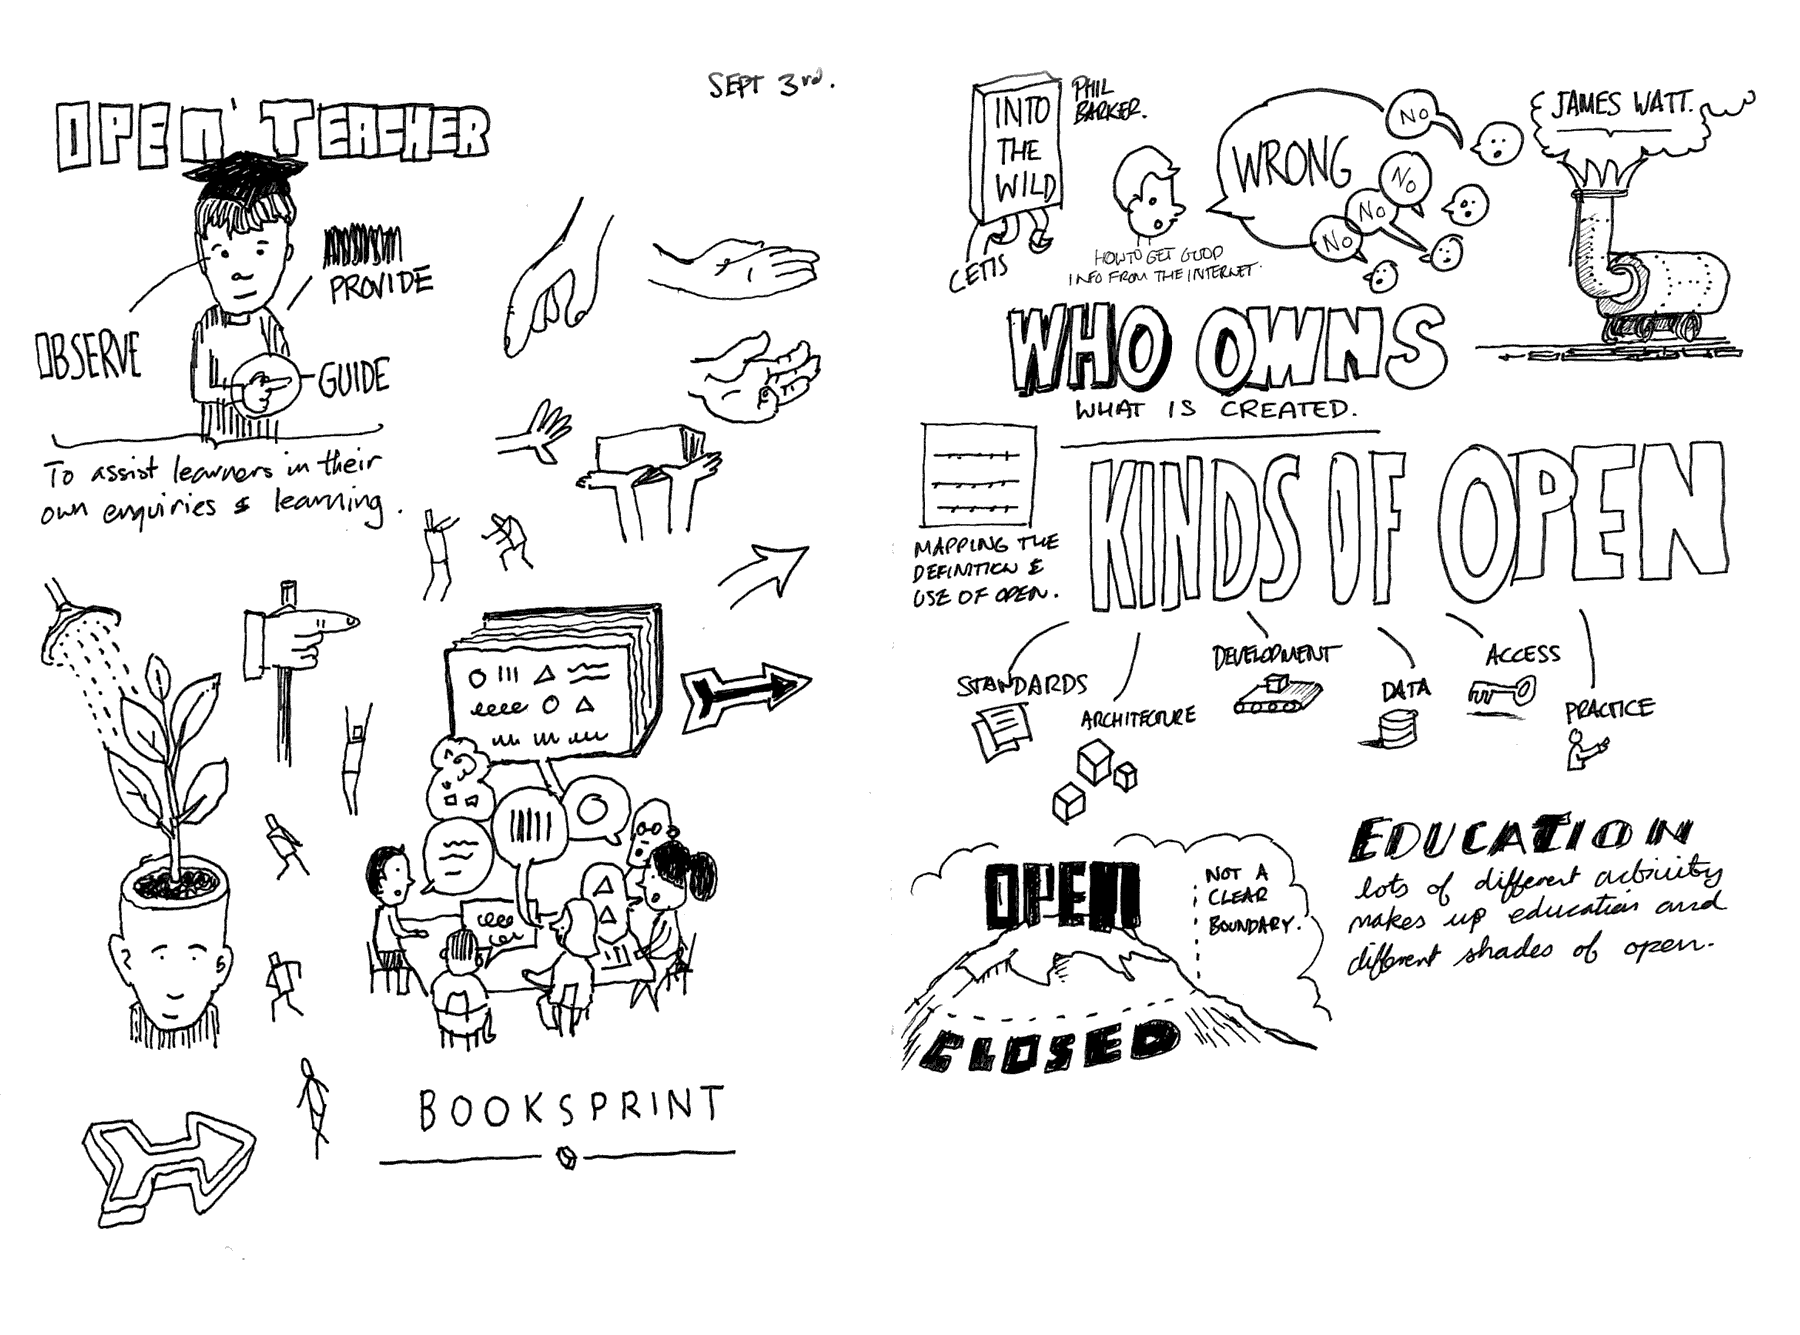 SEPT 3rd.
OPEN TEACHER
PROVIDE
OBSERVE
GUIDE
To assist learners in their
own enquiries & learning.
BOOKSPRINT
INTO
THE
WILD
PHIL
BARKER.
CETIS
HOW TO GET GOOD
INFO FROM THE INTERNET.
WRONG
NO
NO
NO
NO
JAMES WATT.
WHO OWNS
WHAT IS CREATED.
KINDS OF OPEN
MAPPING THE
DEFINITION &
USE OF OPEN.
STANDARDS
ARCHITECTURE
DEVELOPMENT
DATA
ACCESS
PRACTICE
OPEN
NOT A
CLEAR
BOUNDARY.
CLOSED
EDUCATION
lots of different activity
makes up education and
different shades of open.